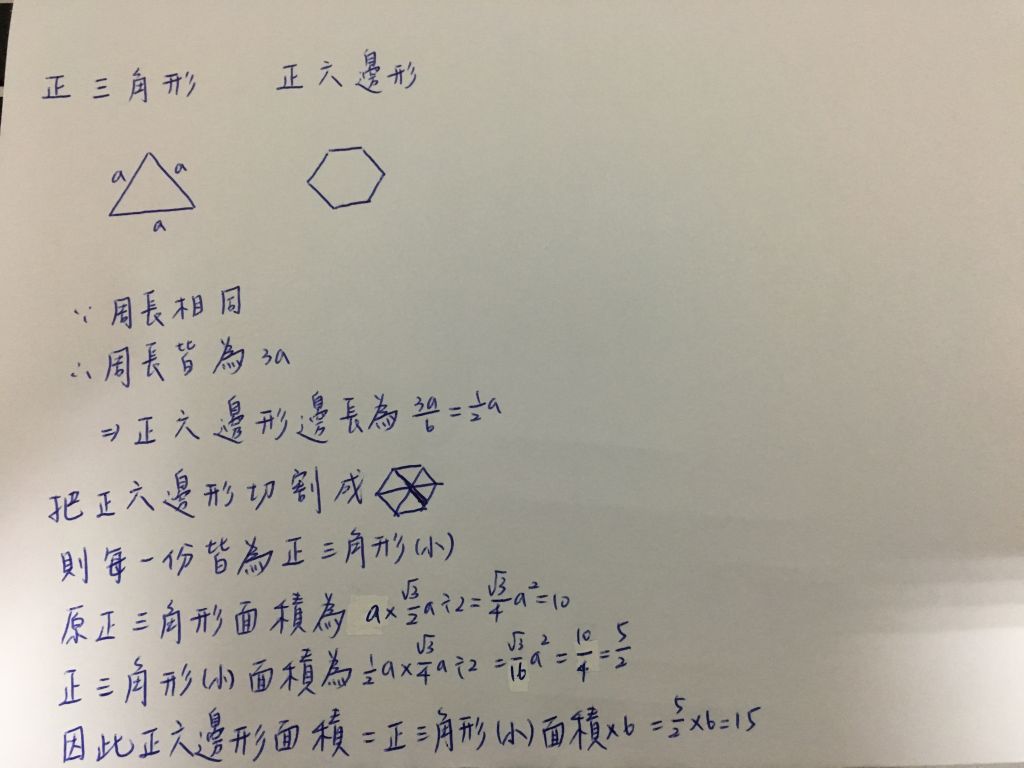 正三角形 正六邊形
a a
a
∵ 周長相同
∴ 周長皆為 3a
⇒ 正六邊形邊長為 3a/6 = 1/2 a
把正六邊形切割成
則每一份皆為正三角形(小)
原正三角形面積為 a × √3/2 a ÷ 2 = √3/4 a² = 10
正三角形(小)面積為 1/2 a × √3/4 a ÷ 2 = √3/16 a² = 10/4 = 5/2
因此正六邊形面積 = 正三角形(小)面積 × 6 = 5/2 × 6 = 15